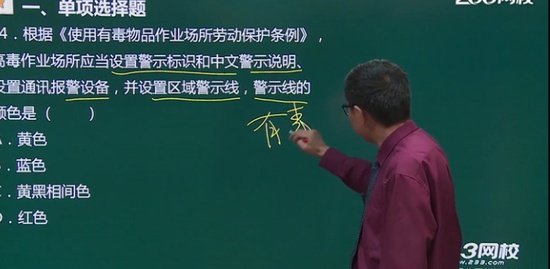 一、单项选择题
233网校
4. 根据《使用有毒物品作业场所劳动保护条例》，
高毒作业场所应当设置警示标识和中文警示说明、
设置通讯报警设备，并设置区域警示线，警示线的
颜色是（　　）
有毒
A．黄色
B．蓝色
C．黄黑相间色
D．红色
3网校
www.233.com